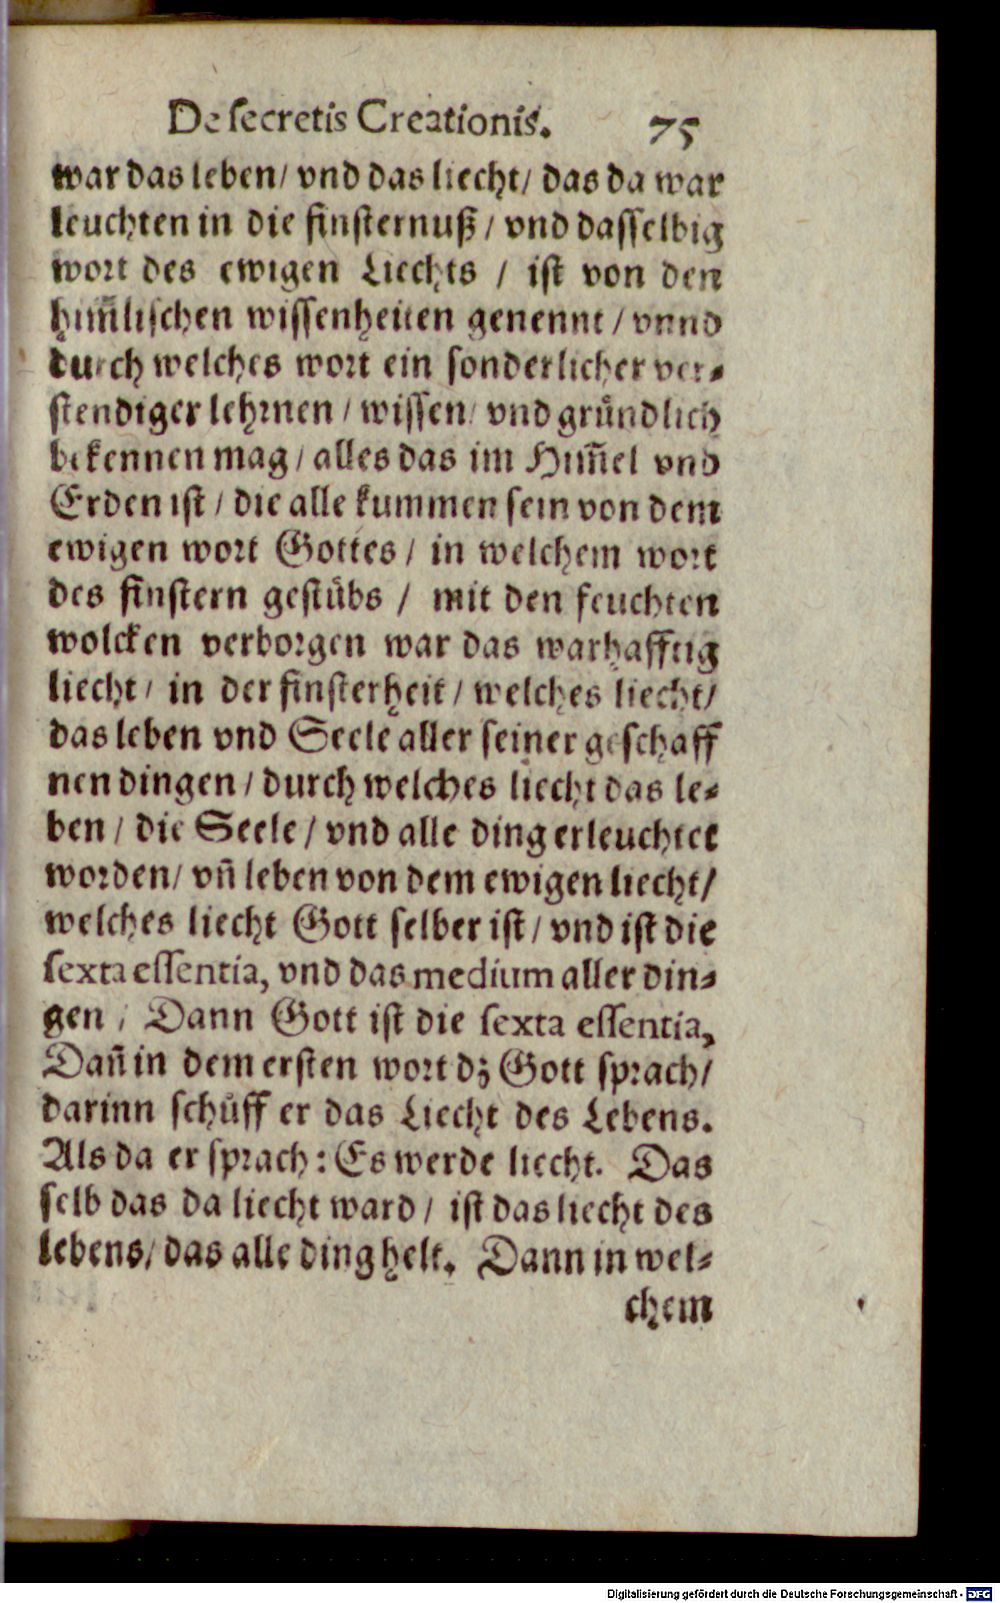 De secretis Creationis. 75
war das leben/ vnd das liecht/ das da war
leuchten in die finsternuß/ vnd dasselbig
wort des ewigen Liechts / ist von den
him̄lischen wissenheiten genennt/ vnnd
durch welches wort ein sonderlicher ver-
stendiger lehrnen / wissen/ vnd gründlich
bekennen mag/ alles das im Him̄el vnd
Erden ist / die alle kummen sein von dem
ewigen wort Gottes/ in welchem wort
des finstern gestübs / mit den feuchten
wolcken verborgen war das warhafftig
liecht/ in der finsterheit/ welches liecht/
das leben vnd Seele aller seiner geschaff
nen dingen/ durch welches liecht das le-
ben/ die Seele/ vnd alle ding erleuchtet
worden/ vn̄ leben von dem ewigen liecht/
welches liecht Gott selber ist/ vnd ist die
sexta essentia, vnd das medium aller din-
gen / Dann Gott ist die sexta essentia,
Dan̄ in dem ersten wort dz Gott sprach/
darinn schůff er das Liecht des Lebens.
Als da er sprach: Es werde liecht. Das
selb das da liecht ward/ ist das liecht des
lebens/ das alle ding helt. Dann in wel-
chem
Digitalisierung gefördert durch die Deutsche Forschungsgemeinschaft - DFG